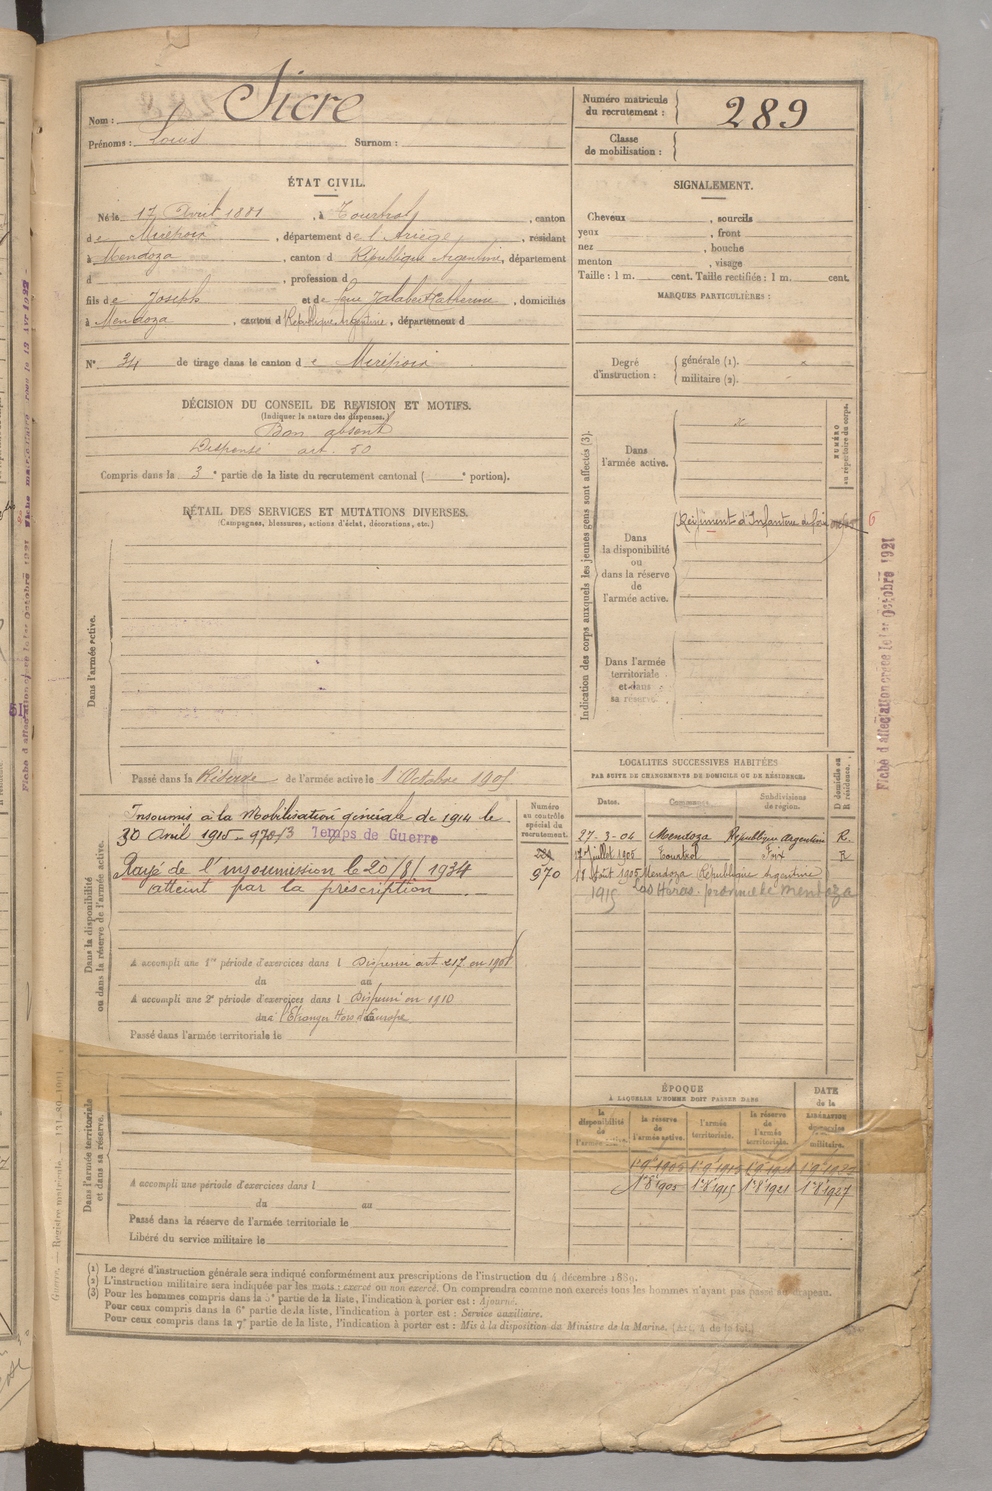 Nom : Sicre
Prénoms : Louis Surnom :
Numéro matricule du recrutement : 289
Classe de mobilisation :
ÉTAT CIVIL.
Né le 17 Avril 1881, à Tourtrol, canton
de Mirepoix, département de l'Ariège, résidant
à Mendoza, canton d République Argentine, département
d , profession d
fils de Joseph et de feue Jalabert Catherine, domiciliés
à Mendoza, canton d République Argentine, département d
N° 34 de tirage dans le canton de Mirepoix
DÉCISION DU CONSEIL DE REVISION ET MOTIFS.
(Indiquer la nature des dispenses.)
Bon absent
Dispensé art. 50
Compris dans la 3e partie de la liste du recrutement cantonal ( e portion).
DÉTAIL DES SERVICES ET MUTATIONS DIVERSES.
(Campagnes, blessures, actions d'éclat, décorations, etc.)
Dans l'armée active.
Passé dans la Réserve de l'armée active le 1 Octobre 1905
SIGNALEMENT.
Cheveux , sourcils
yeux , front
nez , bouche
menton , visage
Taille : 1 m. cent. Taille rectifiée : 1 m. cent.
MARQUES PARTICULIÈRES :
Degré d'instruction : générale (1).
militaire (2).
Indication des corps auxquels les jeunes gens sont affectés (3).
NUMÉRO au répertoire du corps.
Dans l'armée active.
Dans la disponibilité ou dans la réserve de l'armée active.
Régiment d'Infanterie de Foix
6
Dans l'armée territoriale et dans sa réserve.
Fiche d'affectation créée le 1er Octobre 1921
Dans la disponibilité ou dans la réserve de l'armée active.
Insoumis à la Mobilisation générale de 1914 le
30 Avril 1915 - Temps de Guerre
Rayé de l'insoumission le 20/8/1934
atteint par la prescription
Numéro au contrôle spécial du recrutement.
970
A accompli une 1re période d'exercices dans l Dispensé art 217 en 1908
du au
A accompli une 2e période d'exercices dans l Dispensé en 1910
du à l'Etranger Hors d'Europe
Passé dans l'armée territoriale le
LOCALITES SUCCESSIVES HABITÉES
PAR SUITE DE CHANGEMENTS DE DOMICILE OU DE RÉSIDENCE.
Dates. Communes. Subdivisions de région. D domicile ou R résidence.
27-3-04 Mendoza République Argentine R.
17 Juillet 1905 Tourtrol Foix R
Août 1905 Mendoza République Argentine
1915 Las Héras. province de Mendoza
Dans l'armée territoriale et dans sa réserve.
A accompli une période d'exercices dans l
du au
Passé dans la réserve de l'armée territoriale le
Libéré du service militaire le
ÉPOQUE
À LAQUELLE L'HOMME DOIT PASSER DANS
DATE de la LIBÉRATION du service militaire.
la disponibilité de l'armée active. la réserve de l'armée active. l'armée territoriale. la réserve de l'armée territoriale.
1r 8 1905 1r 8 1915 1r 8 1921 1r 8 1927
(1) Le degré d'instruction générale sera indiqué conformément aux prescriptions de l'instruction du 4 décembre 1889.
(2) L'instruction militaire sera indiquée par les mots : exercé ou non exercé. On comprendra comme non exercés tous les hommes n'ayant pas passé au drapeau.
(3) Pour les hommes compris dans la 5e partie de la liste, l'indication à porter est : Ajourné.
Pour ceux compris dans la 6e partie de la liste, l'indication à porter est : Service auxiliaire.
Pour ceux compris dans la 7e partie de la liste, l'indication à porter est : Mis à la disposition du Ministre de la Marine. (Art. 4 de la loi.)